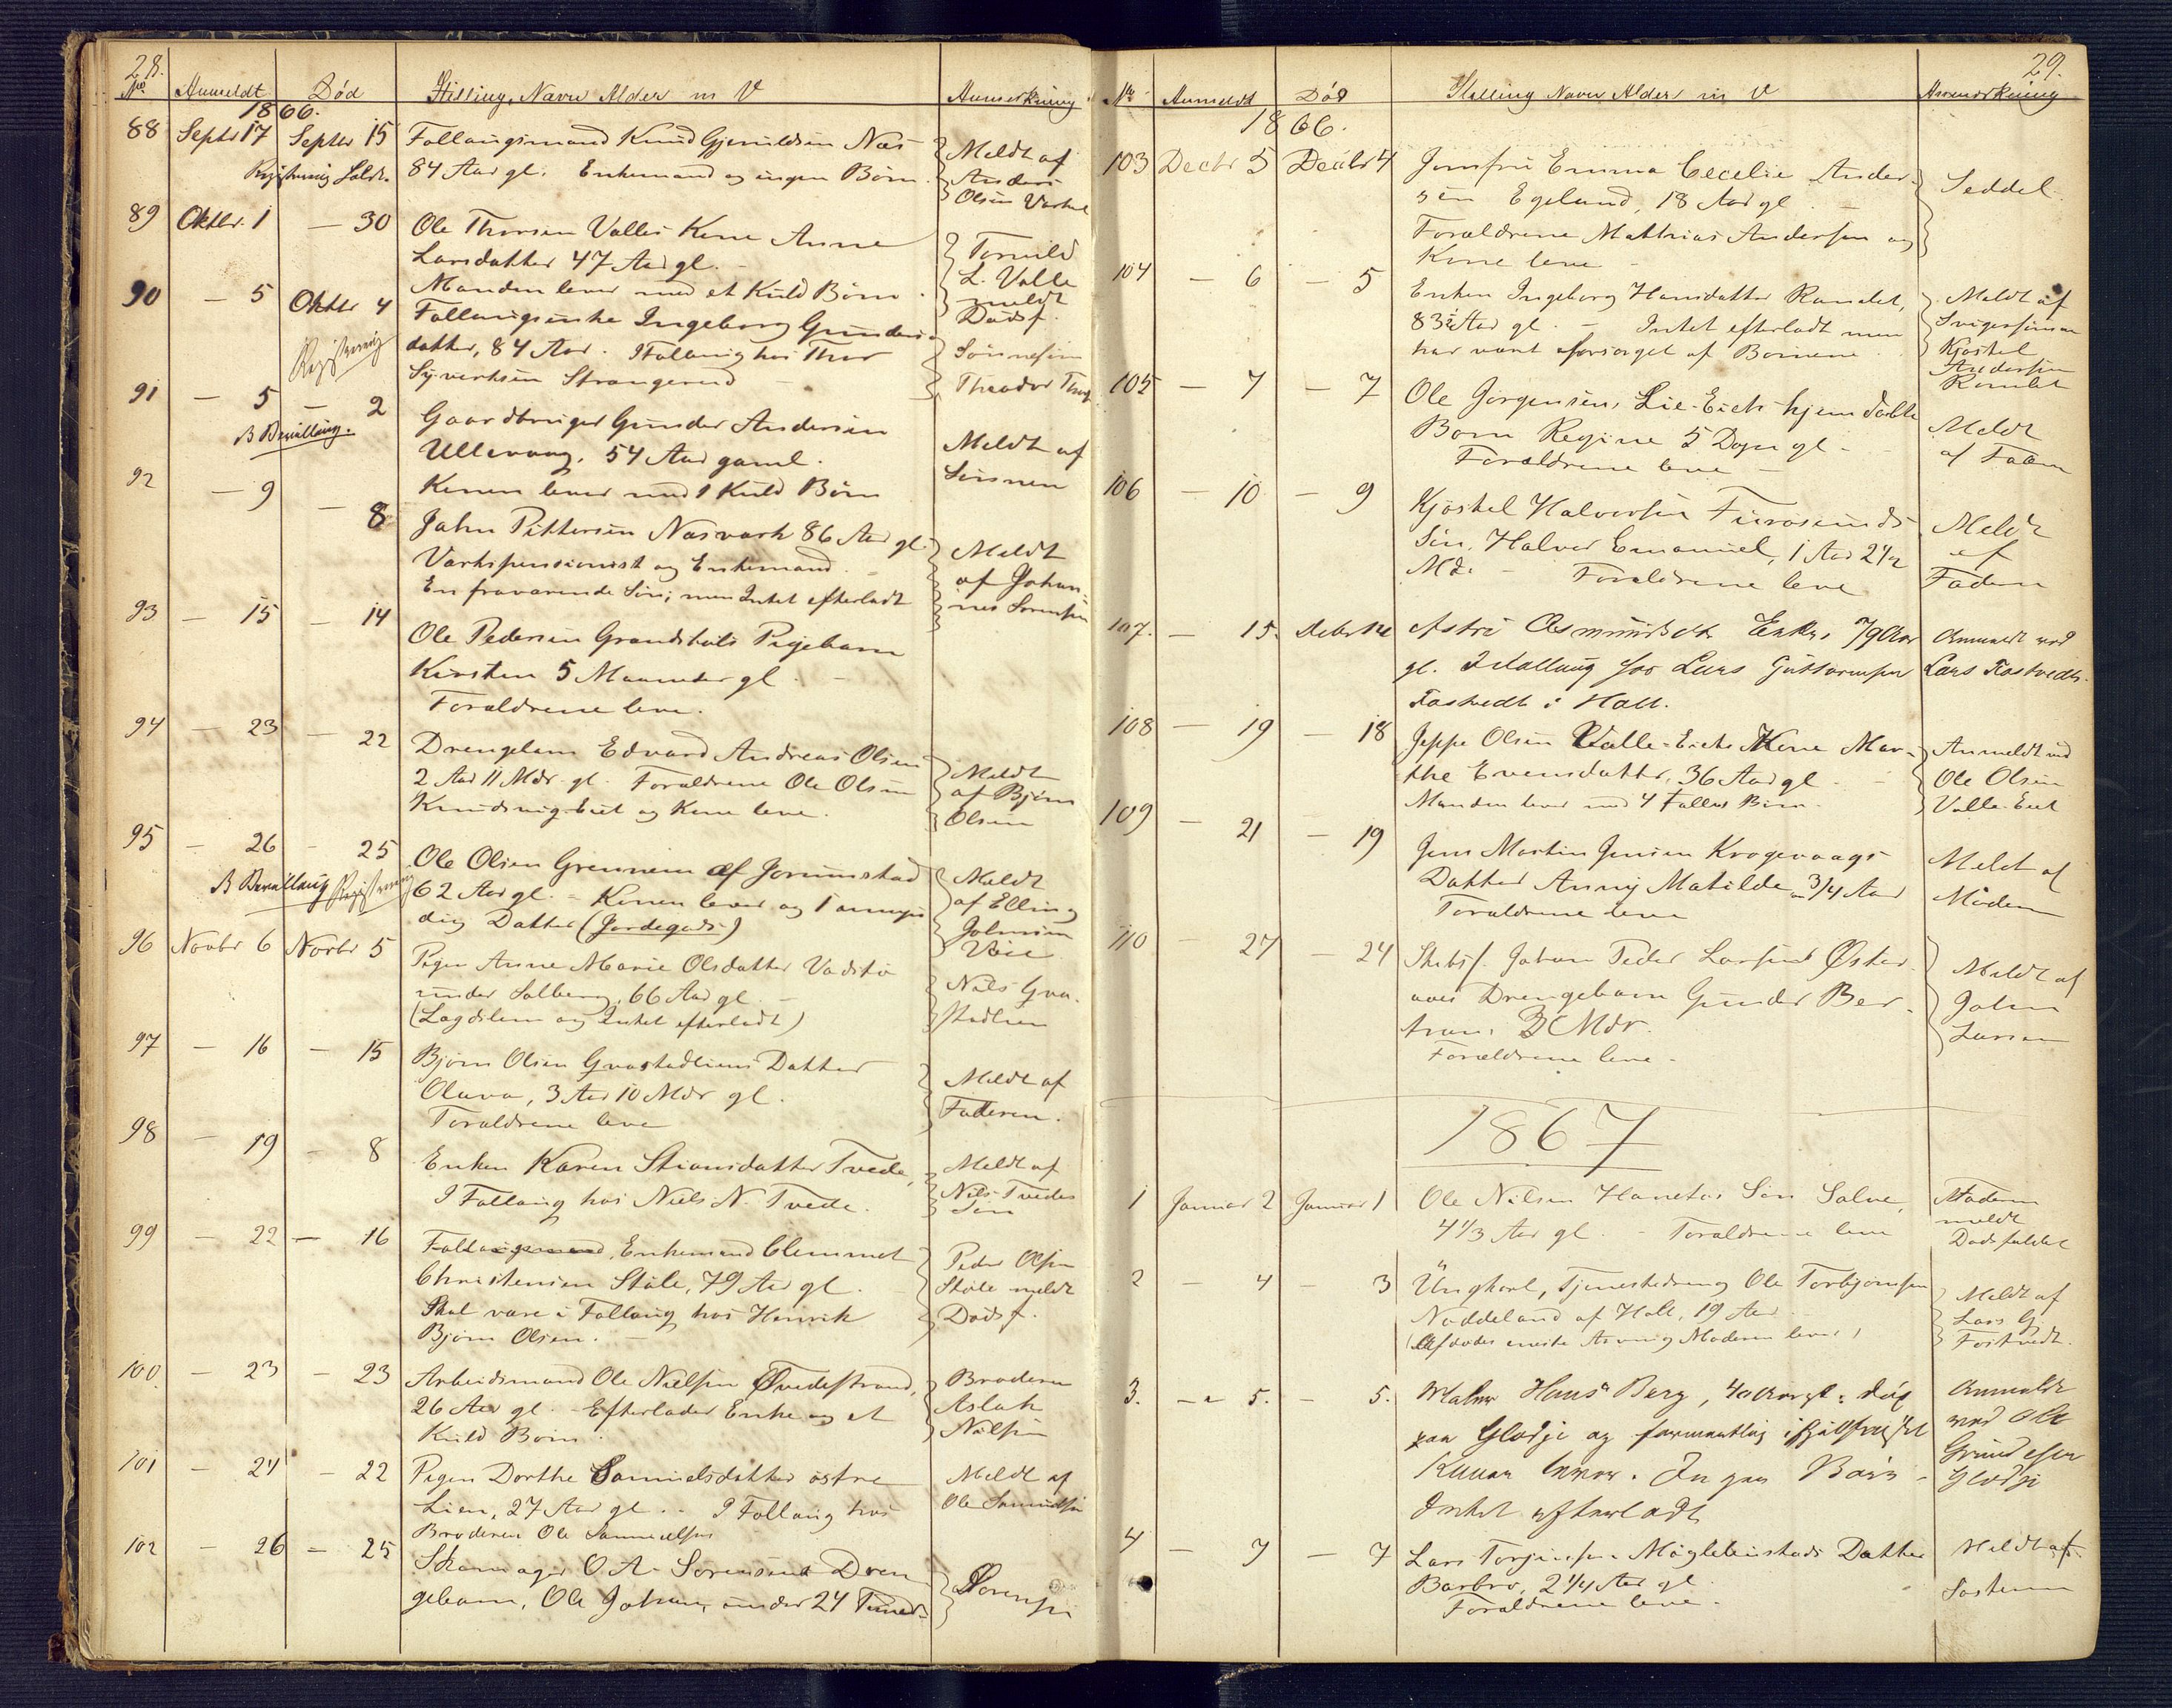 28.
No Anmeldt Død Stilling, Navn Alder m V Anmerkning
1866.
88 Septr 17 Septbr 15 Follaugsmand Knud Gjeruldsen Næs
84 Aar gl. Enkemand og ingen Børn.
Registrering holdt.
Meldt af
Anders
Olsen
89 Oktbr. 1 — 30 Ole Thorsen Valles Kone Anne
Larsdatter 47 Aar gl. —
Manden lever med et Kuld Børn.
L. Valle
meldt
Dødsf.
90 — 5 Oktbr 4 Follaugsenke Ingeborg Gunders
datter, 84 Aar. I Follaug hos Thor
Syvertsen Strangerud —
Registrering
Sønnesøn
Theodor
91 — 5 — 2 Gaardbruger Gunder Andersen
Ullevang, 54 Aar gaml.
Konen lever med 1 Kuld Børn
B Bevilling.
Meldt af
Sønnen
92 — 9 — 8 John Pettersen Næsværk 86 Aar gl.
Værkspensionist og Enkemand. —
En fraværende Søn; men Intet efterladt
Meldt
af Johan-
nes Sørensen
93 — 15 — 14 Ole Pedersen Grandstøls Pigebarn
Kirsten 5 Maaneder gl. —
Forældrene leve.
94 — 23 — 22 Drengebarn Edvard Andreas Olsen
2 Aar 11 Mdr gl. Forældrene Ole Olsen
og Kone leve.
Meldt
af Bjørn
Olsen
95 — 26 — 25 Ole Olsen Grennem af Jorunstad
62 Aar gl. — Konen lever og 1 annyn
dig Datter (Jordegods)
B Bevilling Registrering
Meldt
af Elling
Johnsen
96 Novbr 6 Novbr 5 Pigen Anne Marie Olsdatter Vadstø
under Solberg, 66 Aar gl. —
(Lægdslem og Intet efterladt)
Nils Gva-
stadlien
97 — 16 — 15 Bjørn Olsen Gvastadliens Datter
Olava, 3 Aar 10 Mdr gl.
Forældrene leve
Meldt af
Faderen.
98 — 19 — 8 Enken Karen Stiansdatter Tvede,
I Follaug hos Niels N. Tvede.
Meldt af
Nils Tvedes
Søn
99 — 22 — 16 Follaugsmand, Enkemand Clemmet
Christensen Støle, 79 Aar gl. —
Skal være i Follaug hos Henrik
Bjørn Olsen. —
Peder Olsen
Støle meldt
Dødsf.
100. — 23 — 23 Arbeidsmand Ole Nielsen Tvedestrand,
26 Aar gl. — Efterlader Enke og et
Kuld Børn.
Broderen
Aslak
Nilsen
101 — 24 — 22 Pigen Dorthe Samuelsdatter østre
Lien, 27 Aar gl. — I Follaug hos
Broderen Ole Samuelsen
Meldt af
Ole Samuelsen
102 — 26 — 25 Skomager O. A. Sørensens Dren
gebarn, Ole Johan, under 24 Timer.
Sørensen
29.
No Anmeldt Død Stilling Navn Alder m V Anmerkning
1866.
103 Decbr 5 Decbr 4 Jomfru Emma Cecelie Ander-
sen Egeland, 18 Aar gl. —
Forældrene Mathias Andersen og
Kone leve —
Seddel.
104 — 6 — 5 Enken Ingeborg Hansdatter Ramlet,
83½ Aar gl. — Intet efterladt men
har været forsørget af Børnene.
Meldt af
Svigersønnen
Kjøstel
Andersen
Ramlet
105 — 7 — 7 Ole Jørgensen, Lie-Eiets hjemdøbte
Barn Regine 5 Døgn gl. —
Forældrene leve —
Meldt
af Faderen
106 — 10 — 9 Kjøstel Halvorsen Furøsunds
Søn, Halvor Emanuel, 1 Aar 2½
Md. — Forældrene leve
Meldt
af
Faderen
107. — 15. Decbr 14 Astri Asmundsdtr Enke, 79 Aar
gl. I Follaug hos Lars Guttormsen
Fostvedt i Holt.
Anmeldt ved
Lars Fostvedt.
108 — 19 — 18 Jeppe Olsen Valle-Eiets Kone Mar-
the Evensdatter, 36 Aar gl. —
Manden lever med 4 Fælles Børn.
Anmeldt ved
Ole Olsen
Valle-Eiet
109 — 21 — 19 Jens Martin Jensen Krogvaags
Datter Anny Matilde, ¾ Aar
Forældrene leve
Meldt af
Moderen
110 — 27 — 24 Skibsf. Johan Peder Larsens Øster-
aaes Drengebarn Gunder Ber-
tran. 3 Mdr.
Forældrene leve —
Meldt af
John
Larsen
1867
1 Januar 2 Januar 1 Ole Nilsen Hanetos Søn Salve,
4⅓ Aar gl. — Forældrene leve
Faderen
meldt
Dødsfaldet
2 — 4 — 3 Ungkarl, Tjenestedreng Ole Torbjørnsen
Noddeland af Holt, 19 Aar
(Afdødes eneste Arving Moderen lever)
Meldt af
Lars G.
Fostvedt.
3. — 5. — 5. Maler Hans Berg, 40 Aar gl. død
paa Glødje og formentlig
Konen lever. Ingen Børn —
Intet efterladt
Anmeldt
ved Ole
Gundersen
Glødje
4 — 7 — 7 Lars Torjussen Møglebustads Datter
Barbro, 2¼ Aar gl.
Forældrene leve.
Meldt af